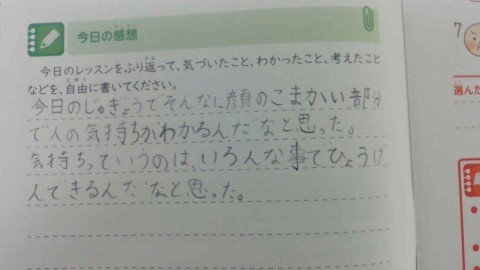 今日の感想
今日のレッスンをふり返って、気づいたこと、わかったこと、考えたこと
などを、自由に書いてください。
今日のじゅぎょうでそんなに顔のこまかい部分
で人の気持ちがわかるんだなと思った。
気持ちっていうのは、いろんな事でひょうげ
んできるんだなと思った。
7
選んだ